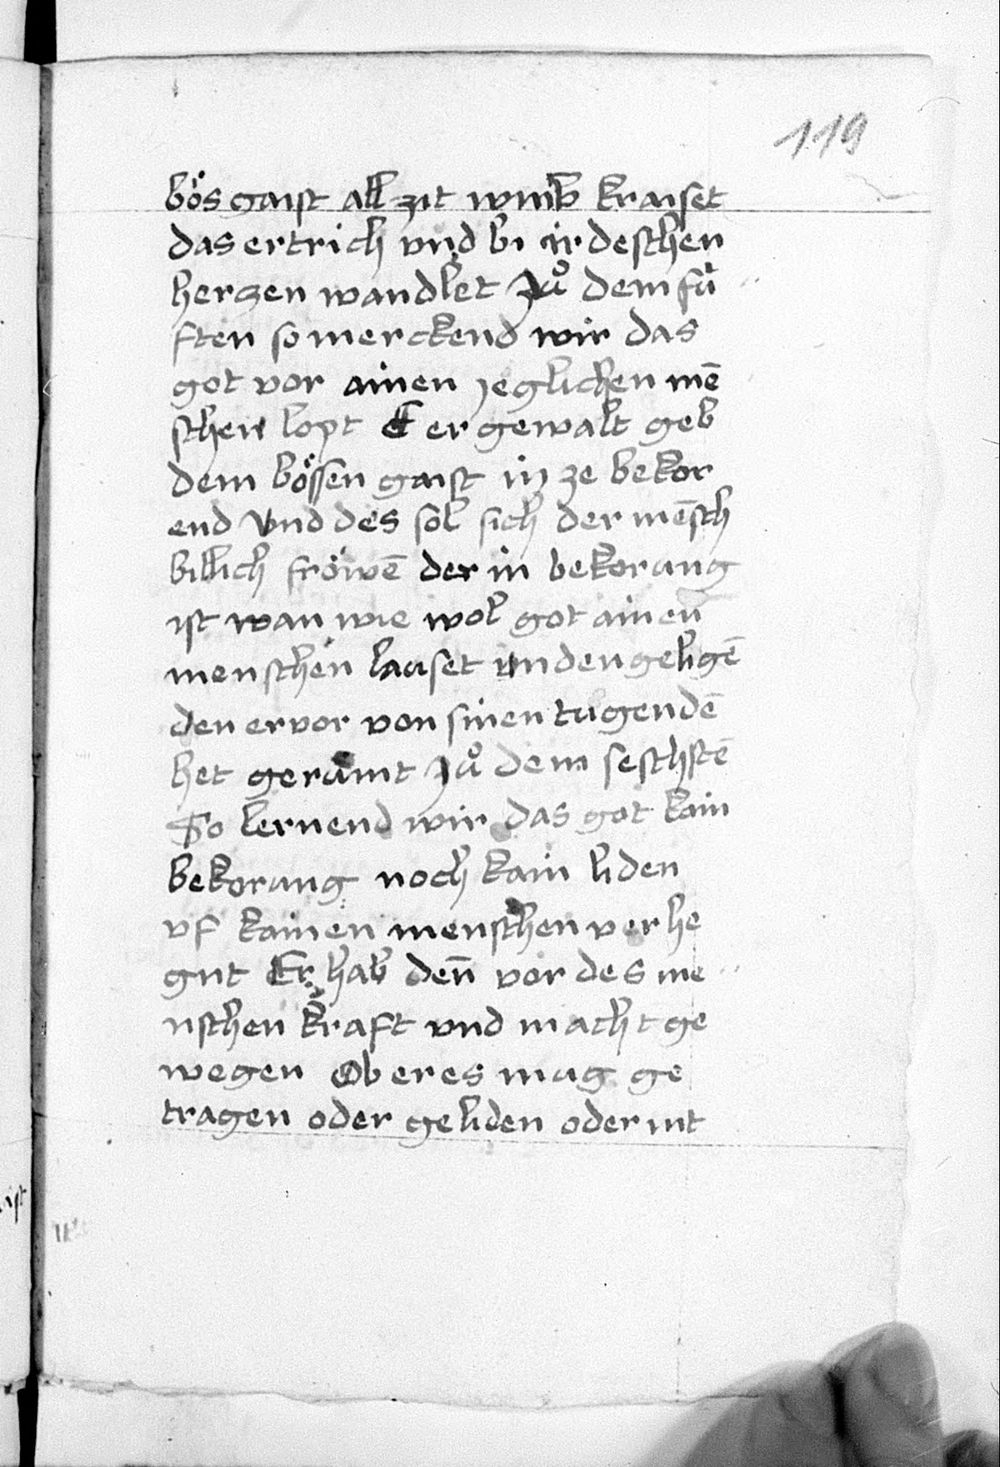 119
bös gaist all zit wmb kraiset
das ertrich vnd bi irdeschen
herczen wandlet Zuͦ dem fú
ften so merckend wir das
got vor ainen jeglichen mē
schen lopt E er gewalt geb
dem bössen gaist in ze bekor
end Vnd des sol sich der mēsch
billich fröwē der in bekorang
ist wan wie wol got ainen
menschen lauset vnden geligē
den er vor von sinen tugendē
het geruͤmt Zuͦ dem seschstē
So lernend wir das got kain
bekorang noch kain liden
vf kainen menschen verhe
gnt Er hab den̄ vor des me
nschen kraft vnd macht ge
wegen Ob er es mug ge
tragen oder geliden oder nit